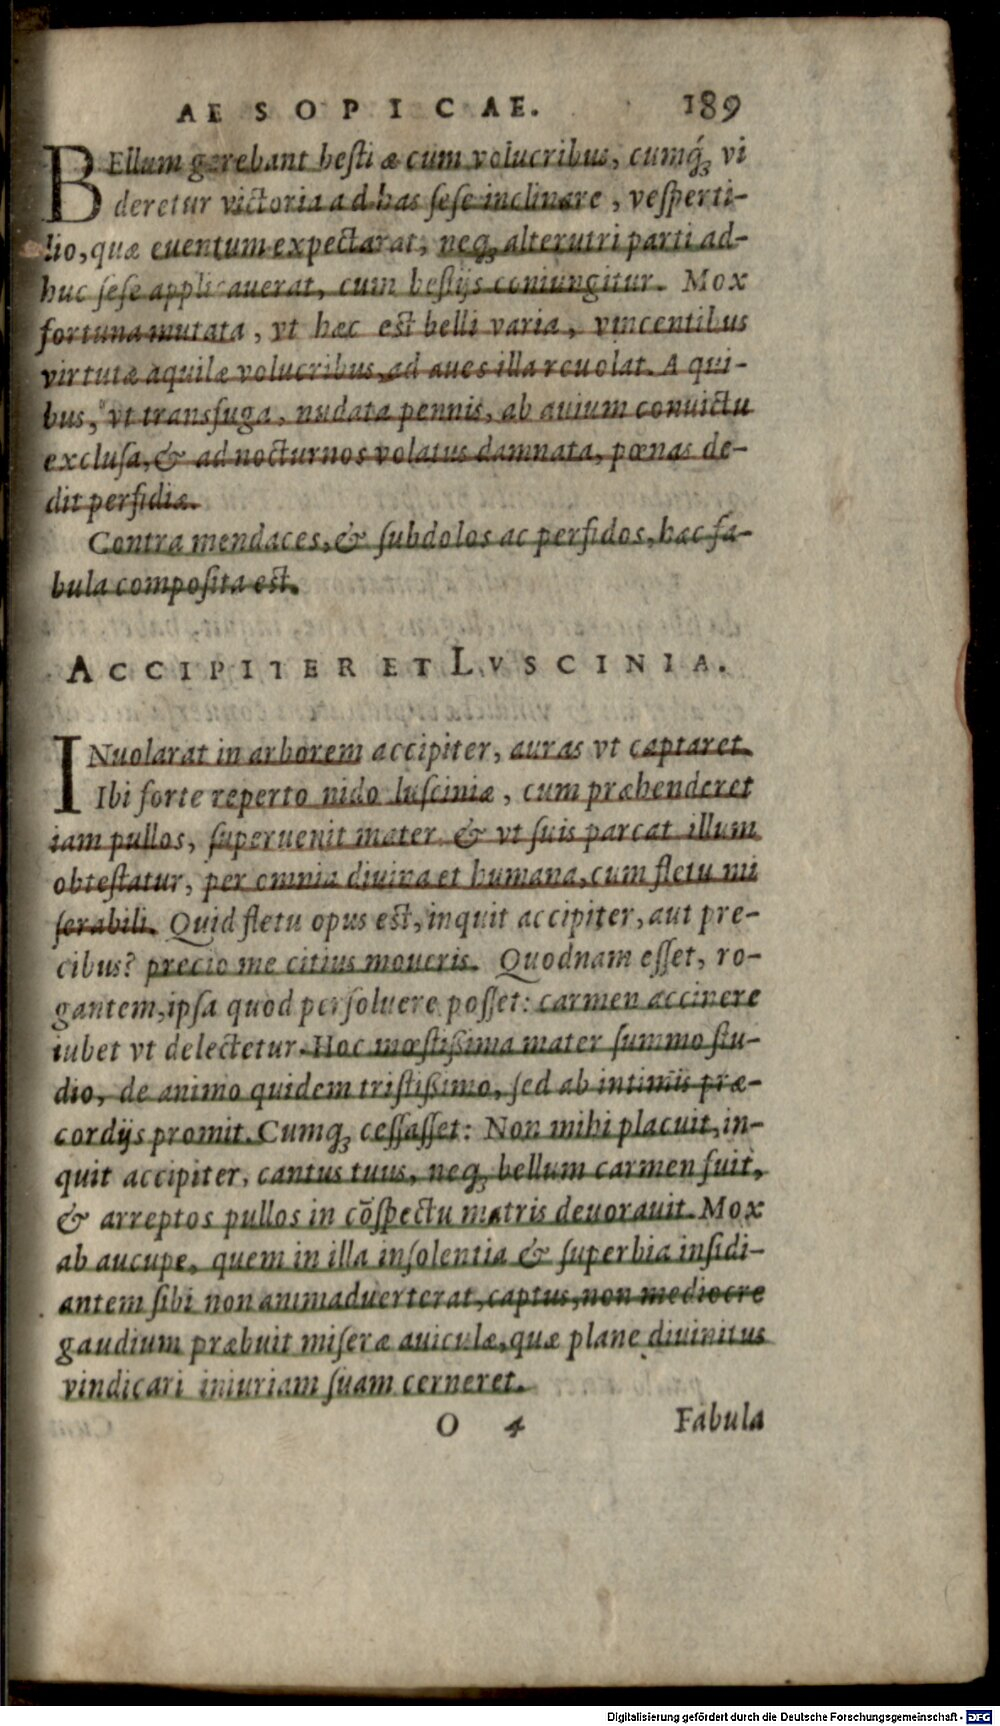 AESOPICAE. 189
BEllum gerebant bestiæ cum volucribus, cumq́ꝫ vi
deretur victoria ad has sese inclinare, vesperti-
lio, quæ euentum expectarat, neqꝫ alterutri parti ad-
huc sese applicauerat, cum bestijs coniungitur. Mox
fortuna mutata, vt hæc est belli varia, vincentibus
virtutæ aquilæ volucribus, ad aues illa reuolat. A qui-
bus, vt transfuga, nudata pennis, ab auium conuictu
exclusa, & ad nocturnos volatus damnata, pœnas de-
dit perfidiæ.
Contra mendaces, & subdolos ac perfidos, hæc fa-
bula composita est.
ACCIPITER ET LVSCINIA.
INuolarat in arborem accipiter, auras vt captaret.
Ibi forte reperto nido lusciniæ, cum præhenderet
iam pullos, superuenit mater & vt suis parcat illum
obtestatur, per omnia diuina et humana, cum fletu mi
serabili. Quid fletu opus est, inquit accipiter, aut pre-
cibus? precio me citius moueris. Quodnam esset, ro-
gantem, ipsa quod persoluere posset: carmen accinere
iubet vt delectetur. Hoc mœstißima mater summo stu-
dio, de animo quidem tristißimo, sed ab intimis præ-
cordijs promit. Cumqꝫ cessasset: Non mihi placuit, in-
quit accipiter, cantus tuus, neqꝫ bellum carmen fuit,
& arreptos pullos in cōspectu matris deuorauit. Mox
ab aucupe, quem in illa insolentia & superbia insidi-
antem sibi non animaduerterat, captus, non mediocre
gaudium præbuit miseræ auiculæ, quæ plane diuinitus
vindicari iniuriam suam cerneret.
O 4 Fabula
Digitalisierung gefördert durch die Deutsche Forschungsgemeinschaft - DFG